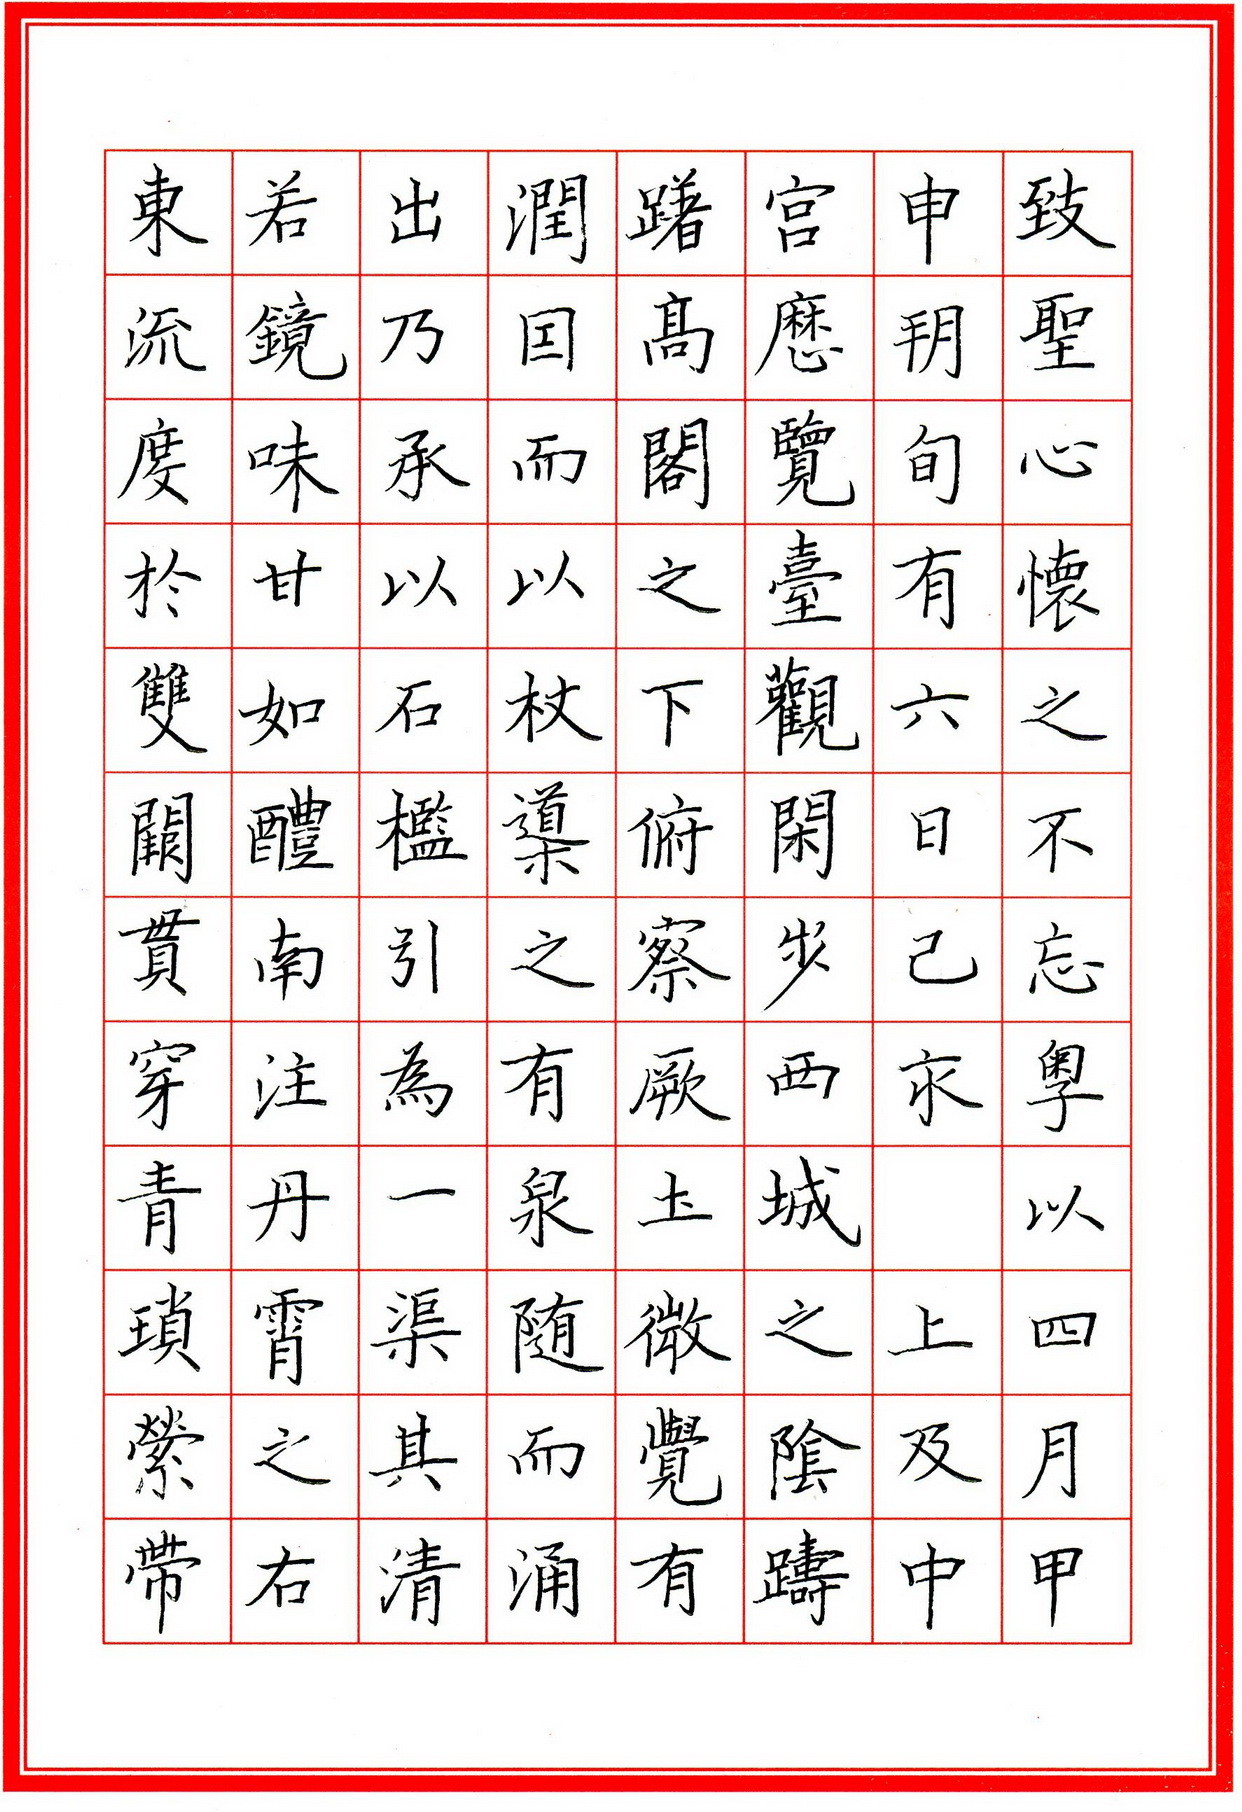 致聖心懷之不忘粤以四月甲
申朔旬有六日己亥 上及中
宫歷覽臺觀閑步西城之陰躊
躇高閣之下俯察厥土微覺有
潤因而以杖導之有泉随而涌
出乃承以石檻引為一渠其清
若鏡味甘如醴南注丹霄之右
東流度於雙闕貫穿青瑣縈帶